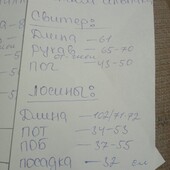 Свитер:
Длина — 61
рукав — 65-70
ПОГ — 43-50
Лосины:
Длина — 102/71-72
ПОТ — 34-53
ПОБ — 37-55
посадка — 32 см